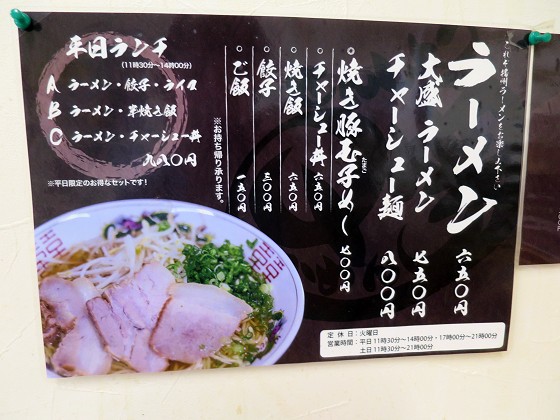 これぞ播州ラーメンをお楽し下さい
ラーメン 六五〇円
大盛ラーメン 七五〇円
チャーシュー麺 八〇〇円
焼き豚玉子めし 七〇〇円
チャーシュー丼 六五〇円
焼き飯 六五〇円
餃子 三〇〇円
ご飯 一五〇円
※お持ち帰り承ります。
平日ランチ
(11時30分～14時00分)
A ラーメン・餃子・ライス
B ラーメン・半焼き飯
C ラーメン・チャーシュー丼
九八〇円
※平日限定のお得なセットです!
定休日:火曜日
営業時間:平日11時30分～14時00分・17時00分～21時00分
土日11時30分～21時00分